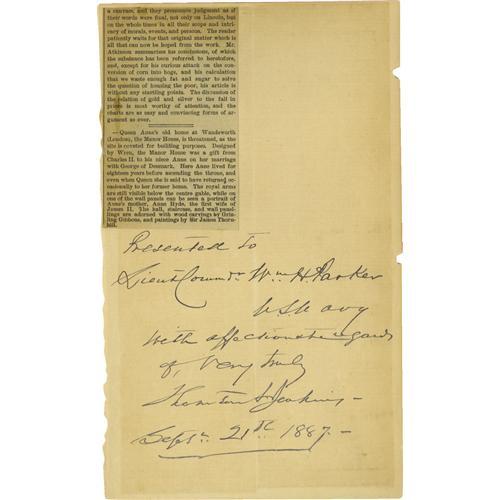 a canvass, and they pronounce judgment as if
their words were final, not only on Lincoln, but
on the whole times in all their scope and intri-
cacy of morals, events, and persons. The reader
patiently waits for that original matter which is
all that can now be hoped from the work. Mr.
Atkinson summarizes his conclusions, of which
the substance has been referred to heretofore,
and, except for his curious attack on the con-
version of corn into hogs, and his calculation
that we waste enough fat and sugar to solve
the question of housing the poor, his article is
without any startling points. The discussion of
the relation of gold and silver to the fall in
prices is most worthy of attention, and the
charts are as easy and convincing forms of ar-
gument as ever.
—Queen Anne's old home at Wandsworth
(London), the Manor House, is threatened, as the
site is coveted for building purposes. Designed
by Wren, the Manor House was a gift from
Charles II. to his niece Anne on her marriage
with George of Denmark. Here Anne lived for
eighteen years before ascending the throne, and
even when Queen she is said to have returned oc-
casionally to her former home. The royal arms
are still visible below the centre gable, while on
one of the wall panels can be seen a portrait of
Anne's mother, Anne Hyde, the first wife of
James II. The hall, staircase, and wall panel-
lings are adorned with wood carvings by Grin-
ling Gibbons, and paintings by Sir James Thorn-
hill.
Presented to
Lieut Commdr Wm H. Parker
U.S. Navy
With affectionate regards
of, Very truly
Thornton A Jenkins -
Septr. 21st 1887. -